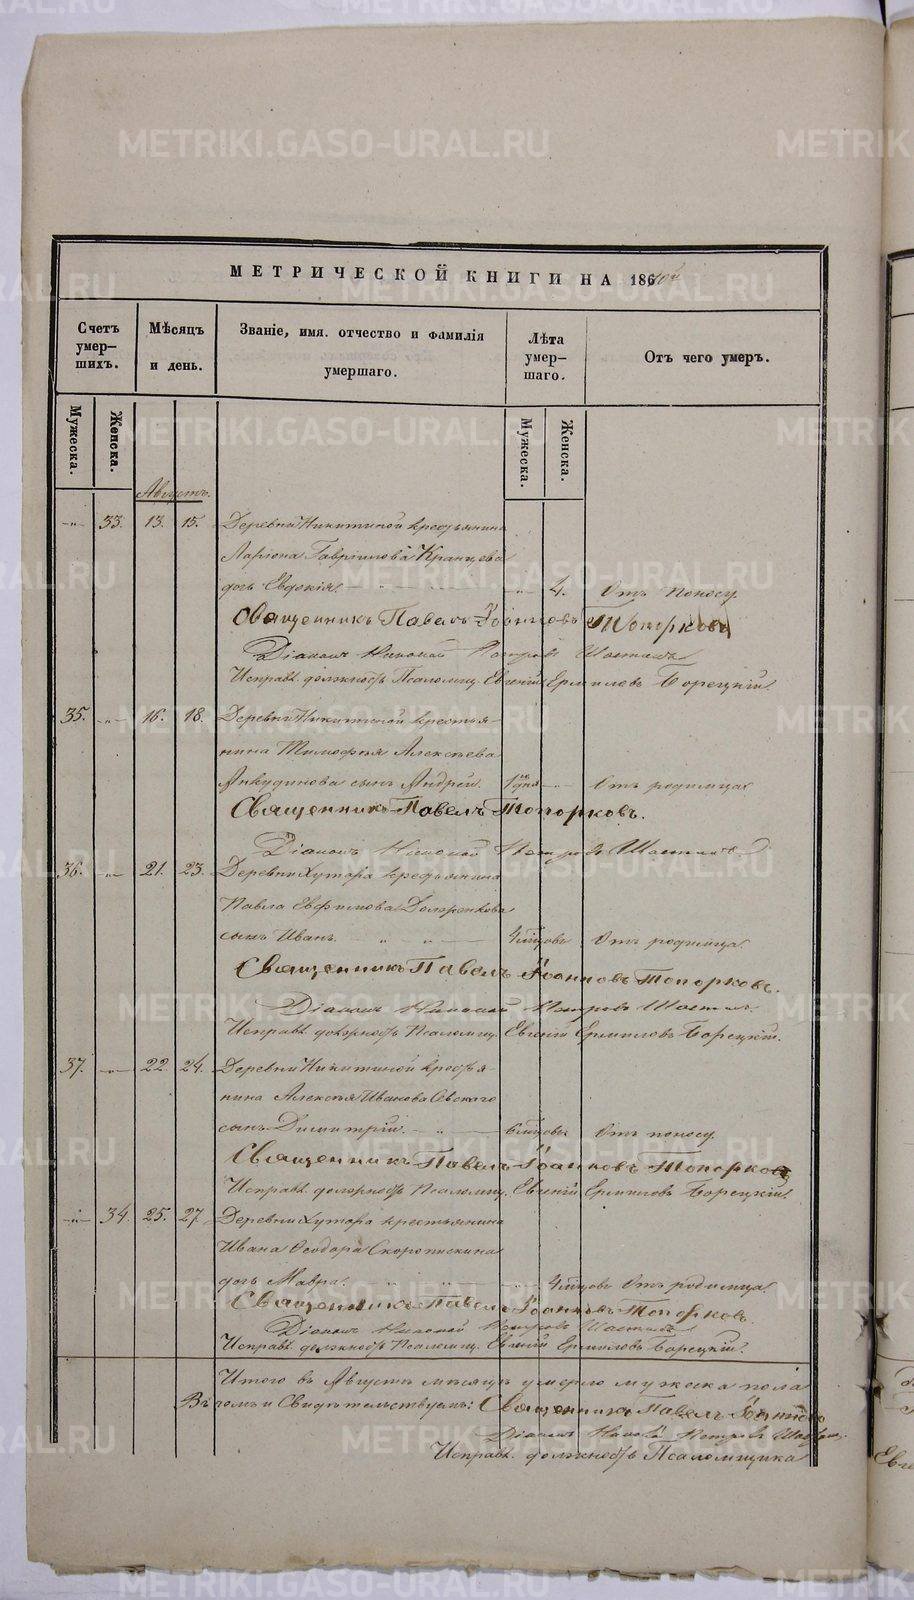 МЕТРИЧЕСКОЙ КНИГИ НА 186
Счетъ умер— шихъ.
Мѣсяцъ и день.
Званіе, имя. отчество и фамилія умершаго.
Лѣта умер— шаго.
Отъ чего умеръ.
Мужеска.
Женска.
Мужеска.
Женска.
Августъ.
33. 13. 15. Деревни Никитиной крестьянина
Ларіона Гавріилова
дочь Евдокія. 4. Отъ поносу.
Священникъ Павелъ Іоанновъ Топорковъ
Діаконъ Николай Петровъ
Исправл. должность Псаломщ. Евгеній Ермиловъ Борецкій.
35. 16. 18. Деревни Никитиной крестья-
нина Тимофея Алексѣева
Анкудинова сынъ Андрей. Отъ родимца
Священникъ Павелъ Топорковъ.
Діаконъ Николай Петровъ
36. 21. 23. Деревни Хутора крестьянина
Павла Евфимова
сынъ Иванъ. 4 мѣсцовъ Отъ родимца
Священникъ Павелъ Іоанновъ Топорковъ.
Діаконъ Николай Петровъ
Исправл. должность Псаломщ. Евгеній Ермиловъ Борецкій.
37. 22. 24. Деревни Никитиной крестья-
нина Алексѣя Иванова
сынъ Димитрій. 6 мѣсцовъ Отъ поносу.
Священникъ Павелъ Іоанновъ Топорковъ
Исправл. должность Псаломщ. Евгеній Ермиловъ Борецкій.
34. 25. 27. Деревни Хутора крестьянина
Ивана Ѳеодора Скоропискина
дочь Мавра. 4 мѣсцовъ Отъ родимца
Священникъ Павелъ Іоанновъ Топорковъ.
Діаконъ Николай Петровъ
Исправл. должность Псаломщ. Евгеній Ермиловъ Борецкій.
Итого въ Августѣ мѣсяцѣ умерло мужеска пола
Въ томъ и Свидѣтельствуемъ: Священникъ Павелъ
Діаконъ Петровъ
Исправл. должность Псаломщика
METRIKI.GASO-URAL.RU